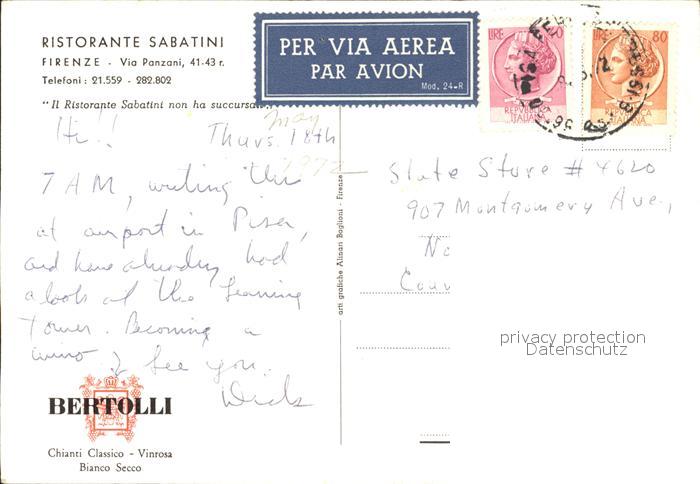 RISTORANTE SABATINI
FIRENZE - Via Panzani, 41-43 r.
Telefoni: 21.559 - 282.802
"Il Ristorante Sabatini non ha succursa
PER VIA AEREA
PAR AVION
Mod. 24-R
LIRE
REPVBBLICA
ITALIANA
LIRE 80
ITALIANA
Hi!! Thurs. 18th
May
1972
7 AM, writing this
at airport in Pisa,
and have already had
a look at the Leaning
Tower. Becoming a
wino. See you.
Dick
State Store # 4620
907 Montgomery Ave.,
No
arti grafiche Alinari Baglioni - Firenze
privacy protection
Datenschutz
BERTOLLI
Chianti Classico - Vinrosa
Bianco Secco